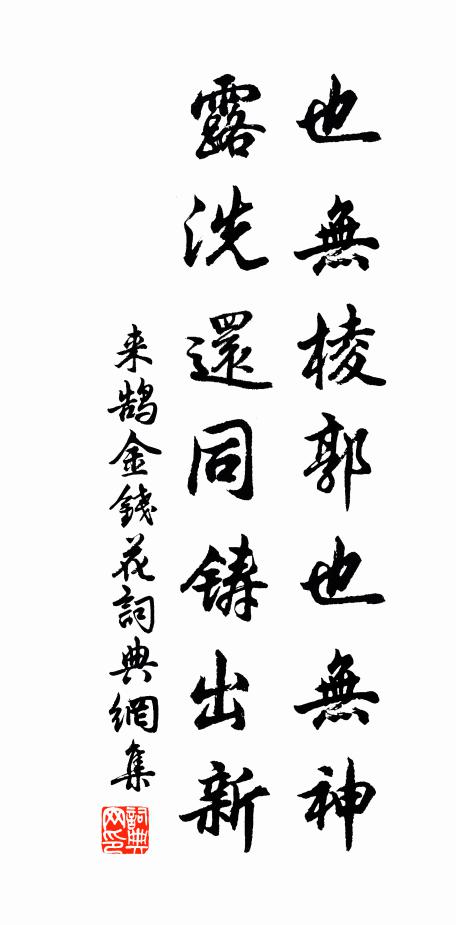 也無棱郭也無神
露洗還同鑄出新
来鵠金錢花詞典網集
詞典网印